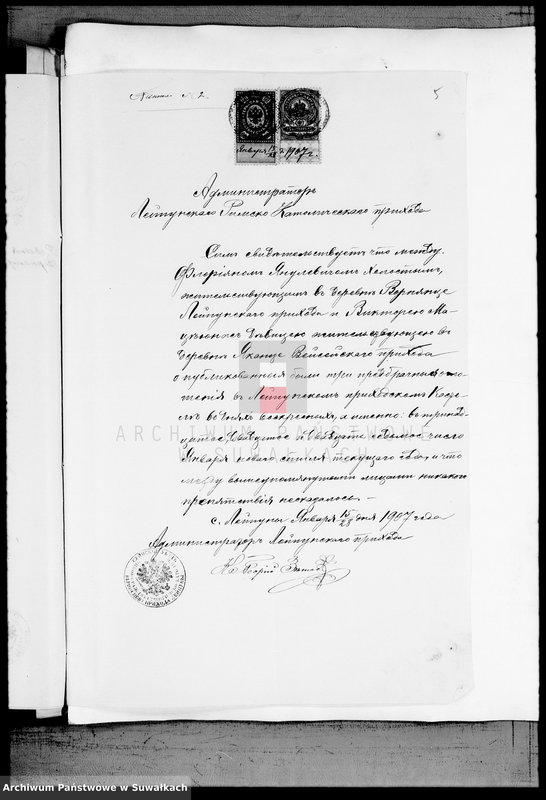 № 2.
5
Января 15/28 д. 1907 г.
Администраторъ
Лейпунскаго Римско Католическаго прихода
Симъ свидѣтельствуетъ что между
Флоріяномъ Янулевичемъ холостымъ,
жительствующимъ въ деревнѣ
Лейпунскаго прихода и Викторею Ма-
дѣвицею жительствующею въ
деревнѣ Вейсейскаго прихода
опубликованныя были три предбрачныя огло-
шенія въ Лейпунскомъ приходскомъ Косце-
лѣ въ дняхъ воскресныхъ, а именно: въ тринад-
цатое, двадцатое и двадцать седьмое число
Января новаго стиля текущаго года, и что
между вышеупомянутыми лицами никакого
препятствія неоказалось. —
с. Лейпуны Января 15/28 дня 1907 года
Администраторъ Лейпунскаго прихода
Кс.
ARCHIWUM PAŃSTWOWE
W SUWAŁKACH
Archiwum Państwowe w Suwałkach